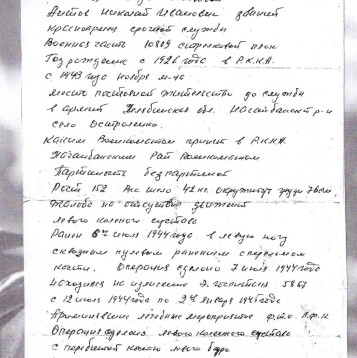 Аистов Николай Иванович звание
красноармеец срочной службы
Военная часть 10809 стрелковый полк
Год рождение с 1926 года в Р.К.К.А.
с 1943 года ноября м-ца
место постоянной жительство до службы
в армии Челябинская обл. Нагайбакский р-н
село Остроленко.
Каким Военкоматом принят в Р.К.К.А.
Нагайбакским Рай Военкоматом
Партийность беспартийный
Рост 152 Вес тело 42 кг. окружность груди 78 см.
Жалоба на отсутствие движений
левого коленого сустава
Ранен 6го июля 1944 года в левую ногу
сквозным пулевым ранением с переломом
кости. Операция сделано 7 июля 1944 года
Находился на излечение Э. госпитале 5867
с 12 июля 1944 года по 24 января 1945 года
Применявшие лечебные мероприятие
Операция сделано левого коленого сустава
с перебитой костью левого бедра